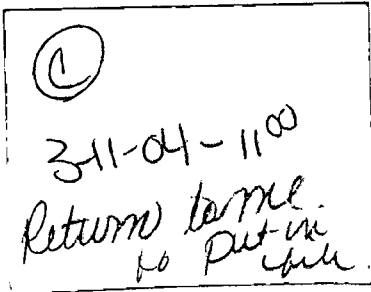 C
3-11-04 - 11 00
Return to me.
to Put in
file.